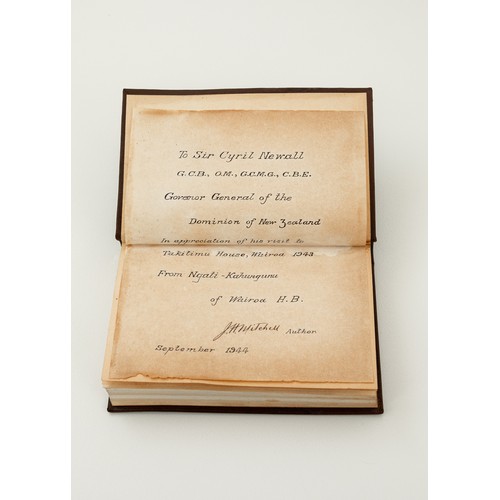 To Sir Cyril Newall
G.C.B., O.M., G.C.M.G., C.B.E.
Governor General of the
Dominion of New Zealand
In appreciation of his visit to
Takitimu House, Wairoa 1943
From Ngati-Kahungunu
of Wairoa H.B.
J.H. Mitchell Author
September 1944